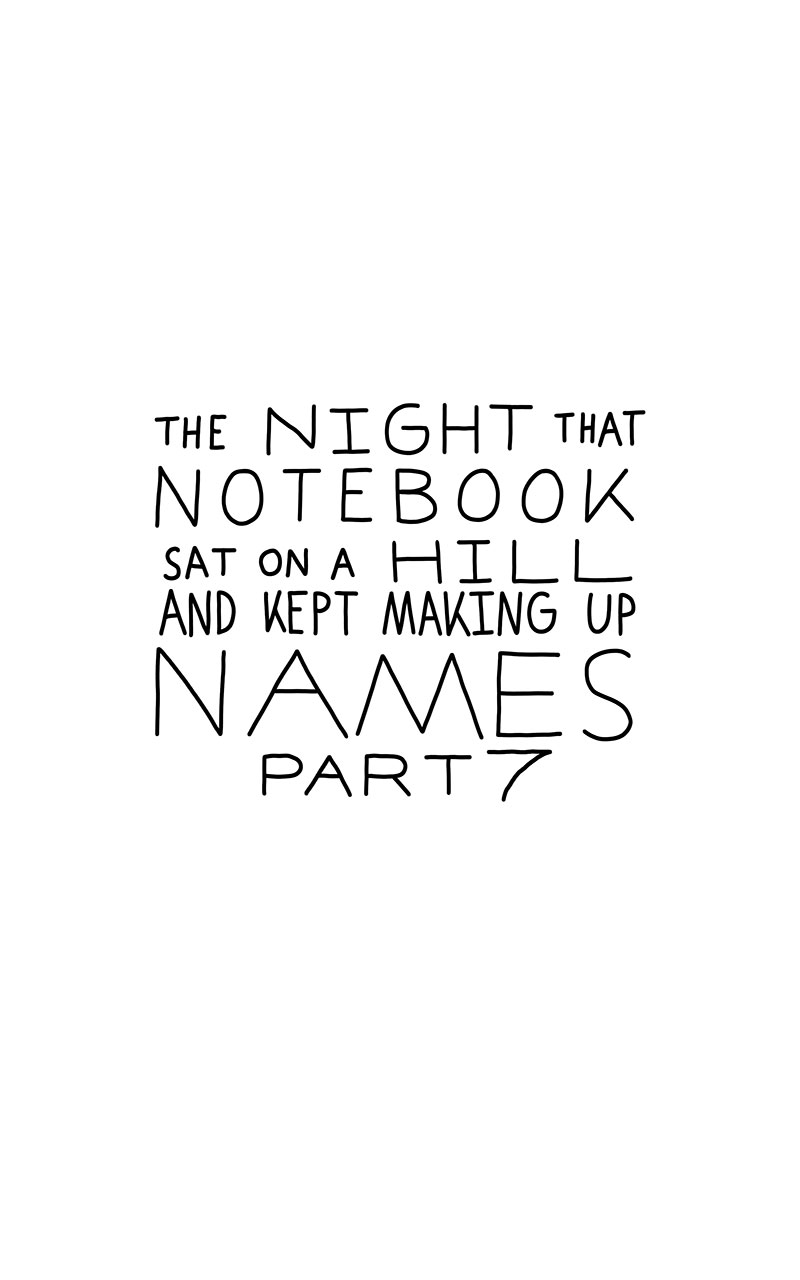 THE NIGHT THAT
NOTEBOOK
SAT ON A HILL
AND KEPT MAKING UP
NAMES
PART 7